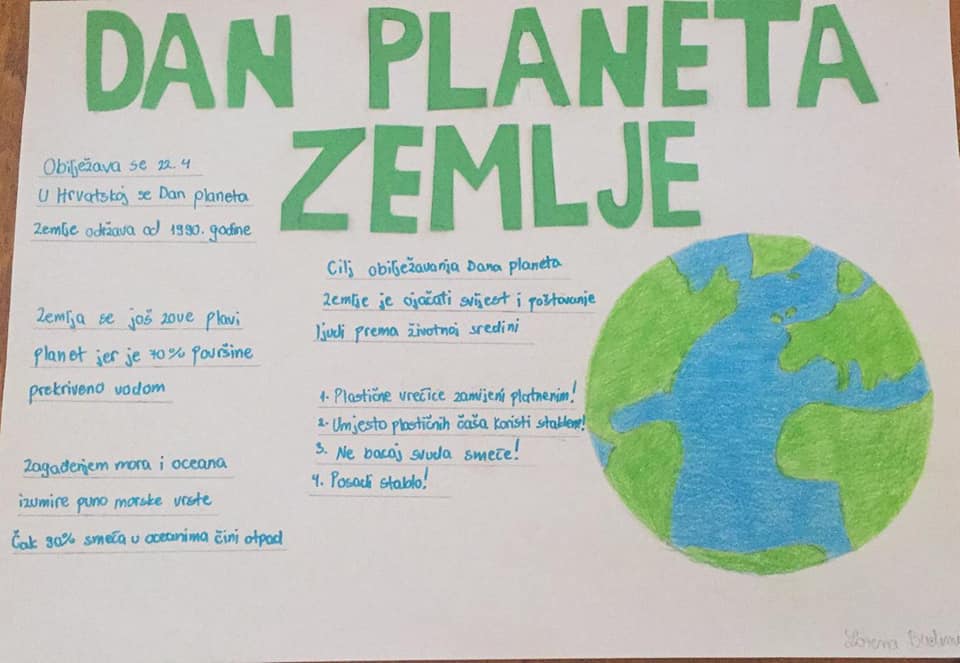 DAN PLANETA
ZEMLJE
Obilježava se 22.4
U Hrvatskoj se Dan planeta
Zemlje održava od 1990. godine
Zemlja se još zove plavi
planet jer je 70% površine
prekriveno vodom
Zagađenjem mora i oceana
izumire puno morske vrste
Čak 90% smeća u oceanima čini otpad
Cilj obilježavanja Dana planeta
Zemlje je ojačati svijest i poštovanje
ljudi prema životnoj sredini
1. Plastične vrećice zamijeni platnenim!
2. Umjesto plastičnih čaša koristi staklem!
3. Ne bacaj svuda smeće!
4. Posadi stablo!
Lorena